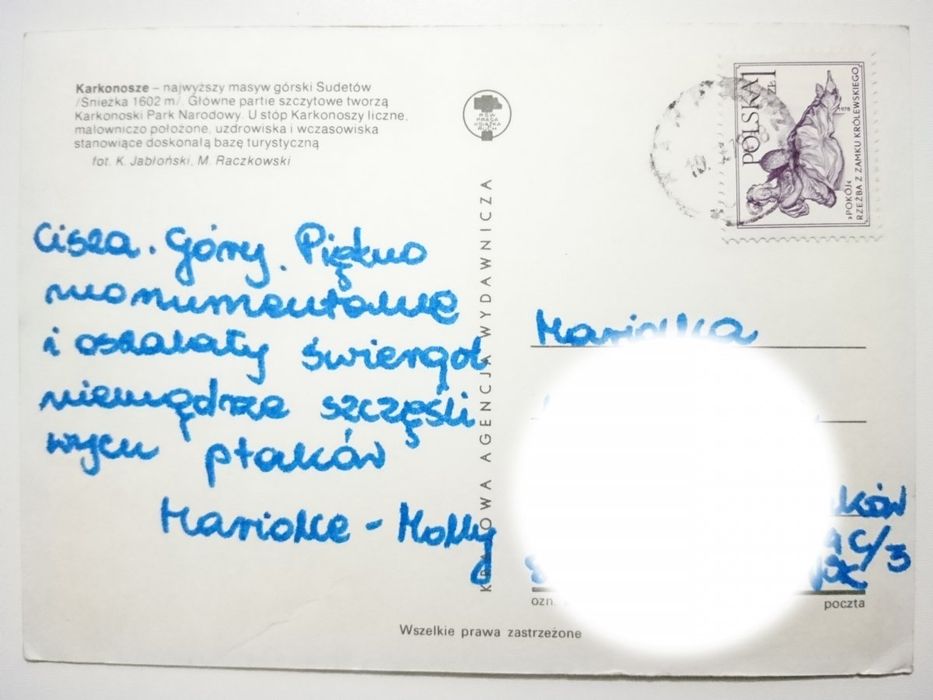 Karkonosze – najwyższy masyw górski Sudetów
/Śnieżka 1602 m/. Główne partie szczytowe tworzą
Karkonoski Park Narodowy. U stóp Karkonoszy liczne,
malowniczo położone, uzdrowiska i wczasowiska
stanowiące doskonałą bazę turystyczną
fot. K. Jabłoński, M. Raczkowski
Cisza. Góry. Piękno
monumentalne
i oszalały świergot
niemądrze szczęśli
wych ptaków
Mariolce - Molly
KRAJOWA AGENCJA WYDAWNICZA
RSW
PRASA
KSIĄŻKA
RUCH
POLSKA 1 ZŁ
1978
»POKÓJ«
RZEŹBA Z ZAMKU KRÓLEWSKIEGO
C/3
poczta
Wszelkie prawa zastrzeżone